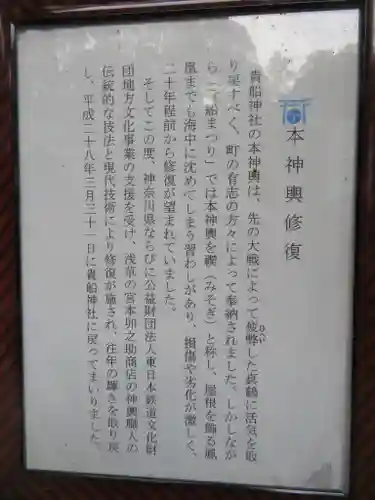 本神輿修復
貴船神社の本神輿は、先の大戦によって疲弊した真鶴に活気を取
り戻すべく、町の有志の方々によって奉納されました。しかしなが
ら、「貴船まつり」では本神輿を禊（みそぎ）と称し、屋根を飾る鳳
凰までも海中に沈めてしまう習わしがあり、損傷や劣化が激しく、
二十年程前から修復が望まれていました。
そしてこの度、神奈川県ならびに公益財団法人東日本鉄道文化財
団地方文化事業の支援を受け、浅草の宮本卯之助商店の神輿職人の
伝統的な技法と現代技術により修復が施され、往年の輝きを取り戻
し、平成二十八年三月三十一日に貴船神社に戻ってまいりました。